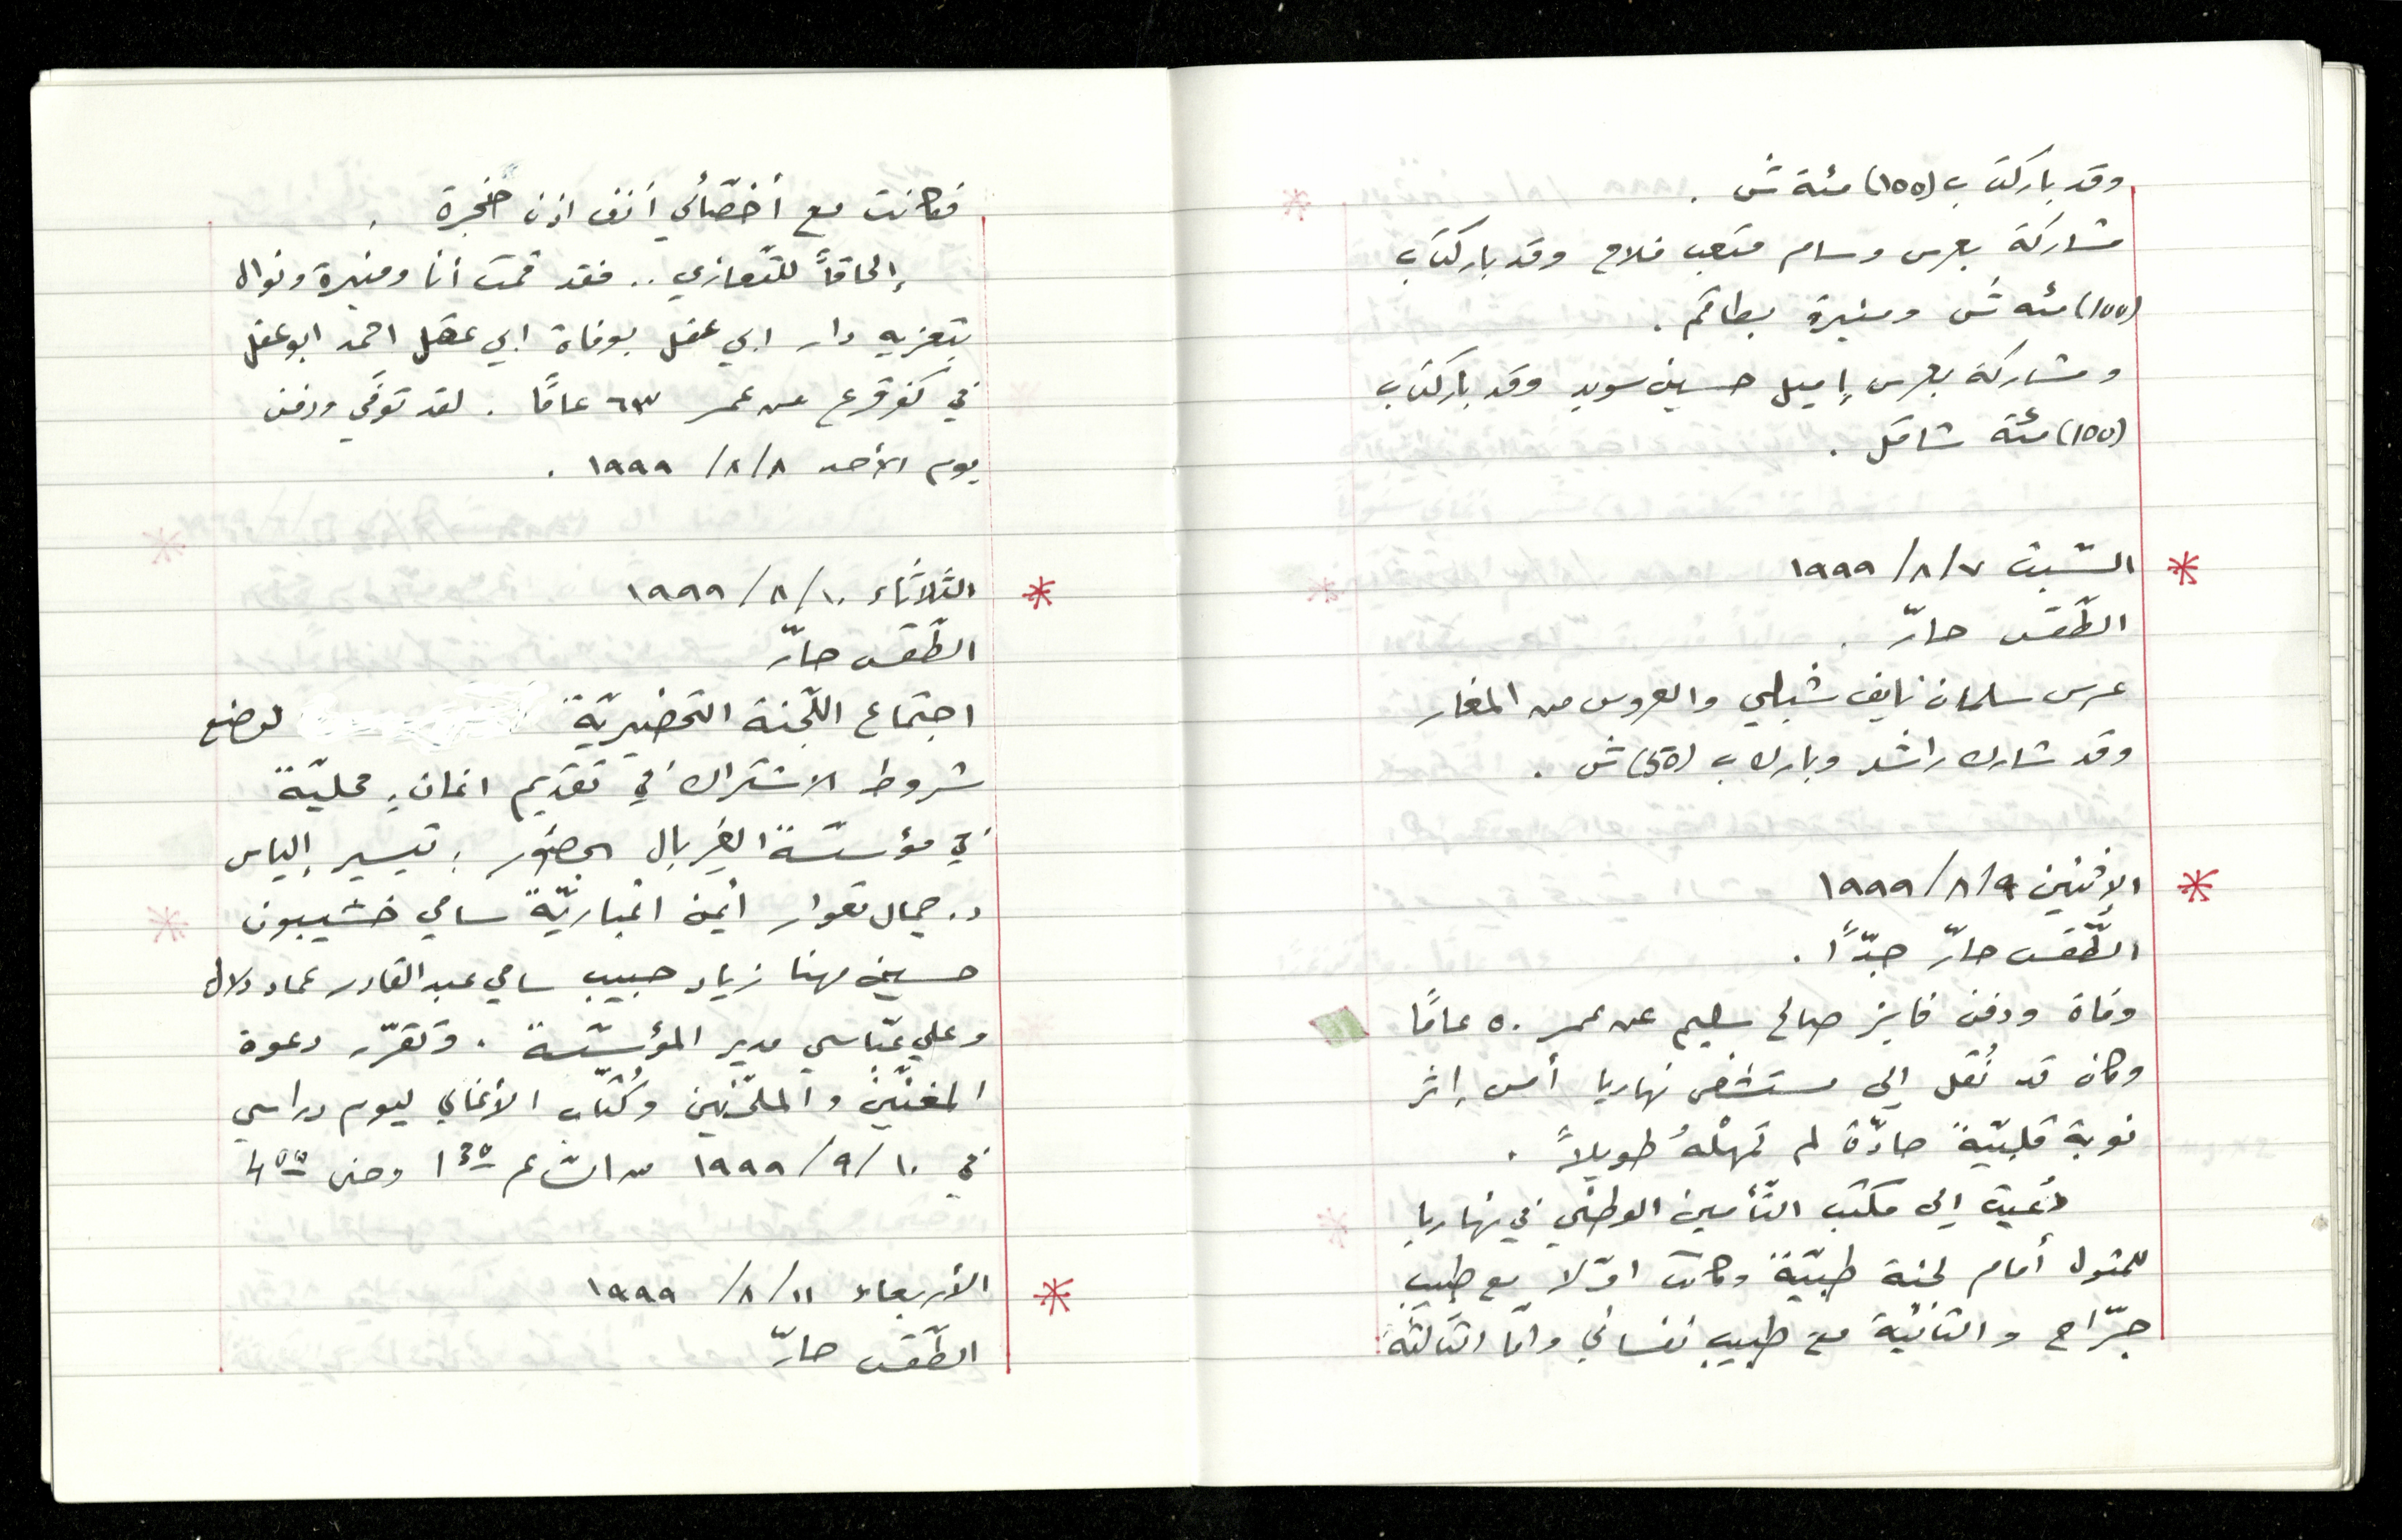 وقد باركتُ ب (100) مئة ش .
مشاركة بعرس وسام متعب فلاح وقد باركتُ ب
(100) مئه ش ومنيرة بطاقم .
ومشاركة بعرس إميل حسين سويد وقد باركتُ ب
(100) مئة شاقل .
* السّبت ٧/٨/١٩٩٩
الطّقس حارّ .
عرس سلمان نايف شبلي والعروس من المغار
وقد شارك راشد وبارك ب (50) ش .
* الإثنين ٩/٨/١٩٩٩
الطّقس حارّ جدّاً .
وفاة ودفن فايز صالح سليم عن عمر ٥٠ عامًا
وكان قد نُقل إلى مستشفى نهاريا أمس إثر
نوبة قلبيّة حادّة لم تمهلْهُ طويلاً .
دُعيت إلى مكتب التّأمين الوطني في نهاريا
للمثول أمام لجنة طبيّة وكانت اوّلا مع طبيبٍ
جرّاح والثانية مع طبيبٍ نفساني وامّا الثالثة
فكانت مع أخصّائي أنف اذن حنجرة .
إلحاقاً للتّعازي .. فقد قمت أنا ومنيرة ونوال
بتعزيه دار ابي عقل بوفاة ابي عقل احمد ابو عقل
في كفر قرع عن عمر ٦٣ عامًا . لقد توفّي ودفن
يوم الأحد ٨/٨/ ١٩٩٩ .
* الثّلاثاء ١٠/٨/١٩٩٩
الطّقس حارّ
اجتماع اللّجنة التحضيريّة لوضع
شروط الاشتراك في تقديم اغانٍ محليّة
في مؤسسّة الغربال بحضور : تيسير إلياس
د. جمال قعوار أيمن اغباريّة سامي خشيبون
حسين مهنا زياد حبيب سامي عبد القادر عماد دلال
وعلي عبّاسي مدير المؤسّسة . وتقرّر دعوة
المغنّين والملحّنين وكُتّاب الأغاني ليوم دراسي
في ١٠/٩/١٩٩٩ من السّاعه 1 30 وحتى 4 00
* الأربعاء ١١/٨/ ١٩٩٩
الطّقس حارّ